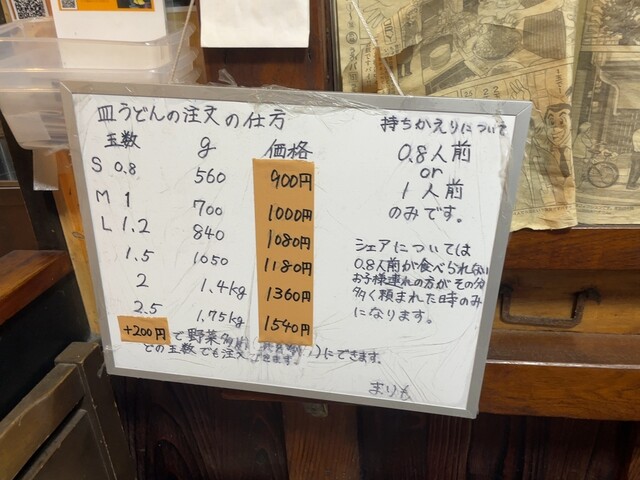 皿うどんの注文の仕方
玉数 g 価格
S 0.8 560 900円
M 1 700 1000円
L 1.2 840 1080円
1.5 1050 1180円
2 1.4kg 1360円
2.5 1.75kg 1540円
+200円 で野菜多め にできます。
どの玉数でも注文できます。
持ちかえりについて
0.8人前
or
1人前
のみです。
シェアについては
0.8人前が食べられない
お子様連れの方がその分
多く頼まれた日時のみ
になります。
まりも